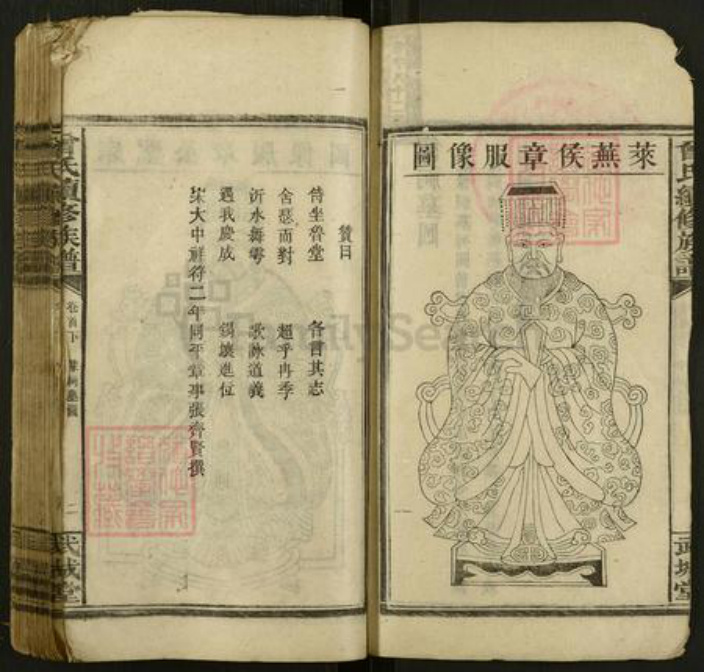 萊蕪侯章服像圖
曾氏續修族譜
武城堂
贊曰
侍坐魯堂 各言其志
舍瑟而對 超乎冉季
沂水舞雩 歌詠道義
遇我慶成 錫壤進位
宋大中祥符二年同平章事張齊賢撰
曾氏續修族譜
卷首下
二
武城堂
FamilySearch